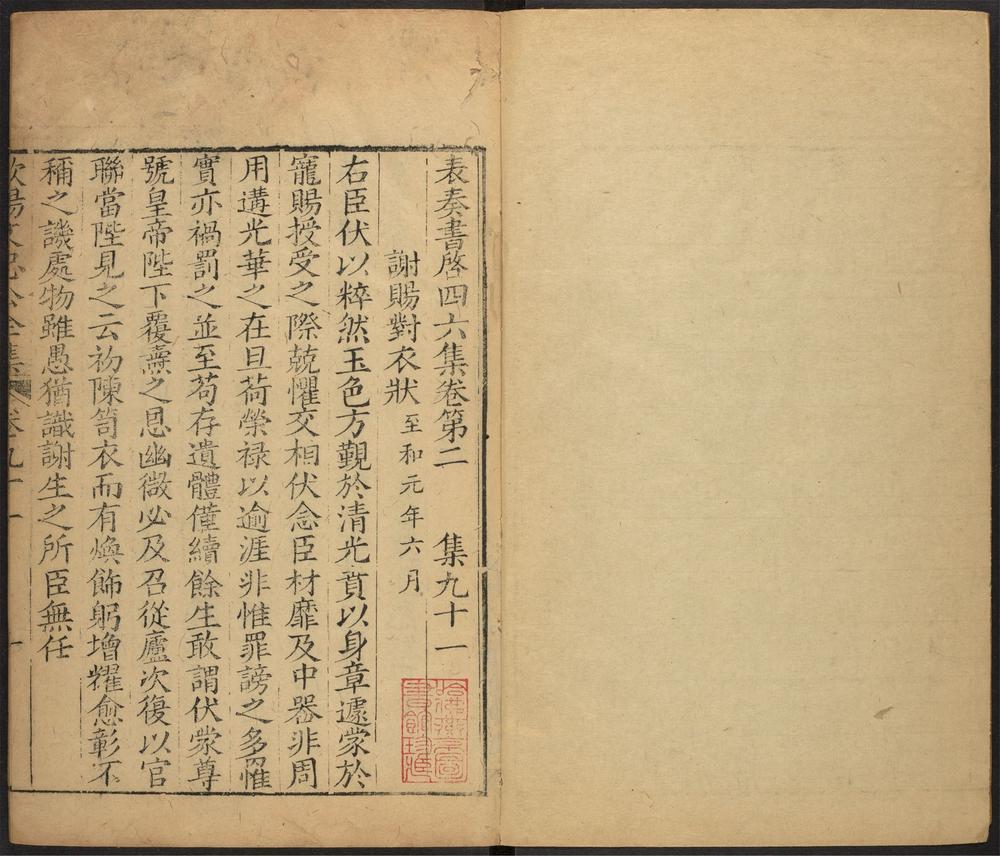 表奏書啓四六集卷第二　集九十一
謝賜對衣狀 至和元年六月
右臣伏以粹然玉色方覲於清光賁以身章遽蒙於
寵賜授受之際兢懼交相伏念臣材靡及中器非周
用遘光華之在旦荷榮禄以逾涯非惟罪謗之多罹
實亦禍罰之並至苟存遺體僅續餘生敢謂伏蒙尊
號皇帝陛下覆燾之恩幽微必及召從廬次復以官
聯當陛見之云初陳笥衣而有煥飾躬增耀愈彰不
稱之譏處物雖愚猶識謝生之所臣無任
歐陽文忠公全集 卷九十一 一